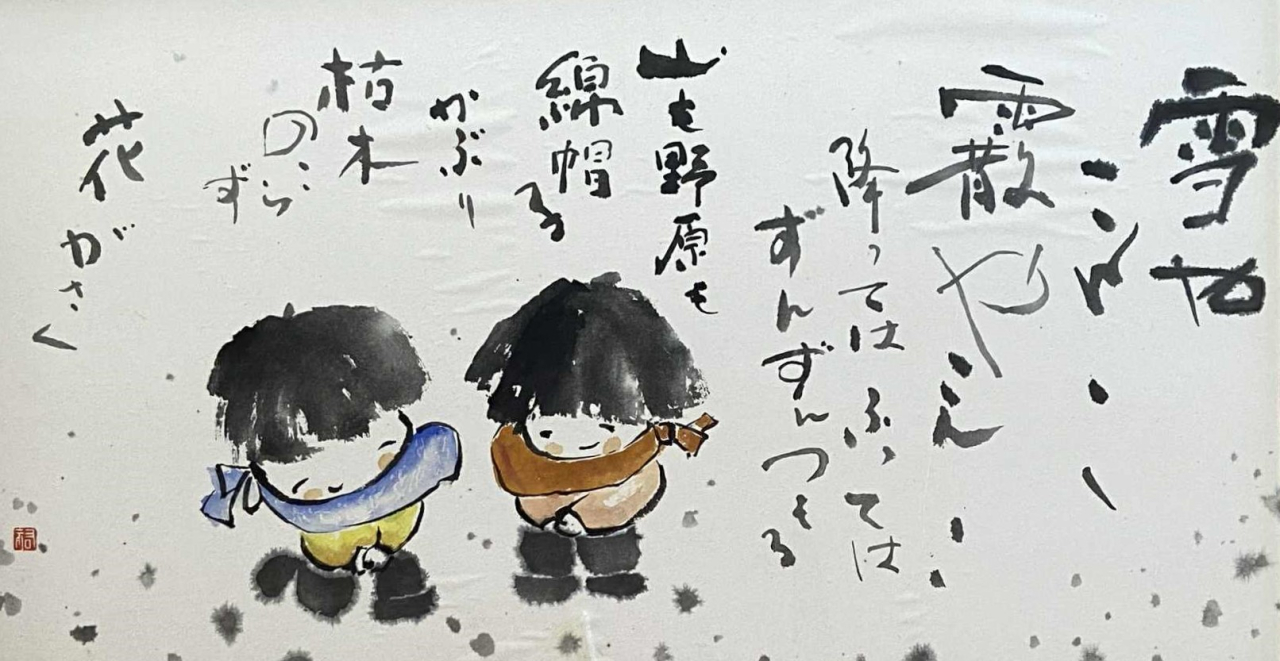 雪や
こんこ
霰やこんこ
降ってはふっては
ずんずんつもる
山も野原も
綿帽子
かぶり
枯木
のこら
ず
花がさく